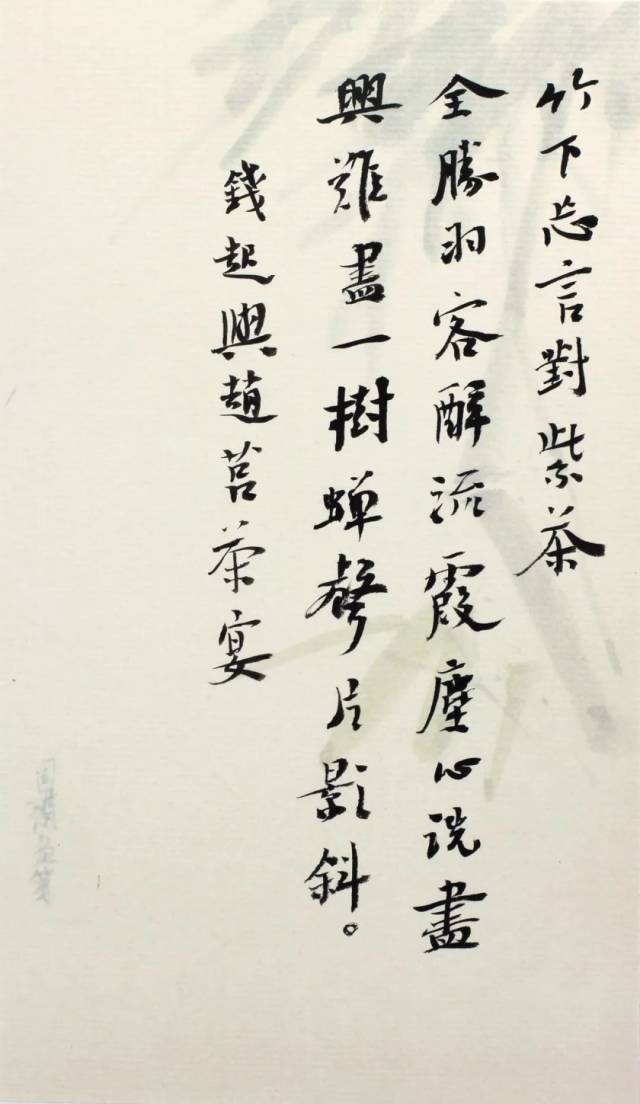 竹下忘言對紫茶
全勝羽客醉流霞塵心洗盡
興難盡一樹蟬聲片影斜。
錢起與趙莒茶宴